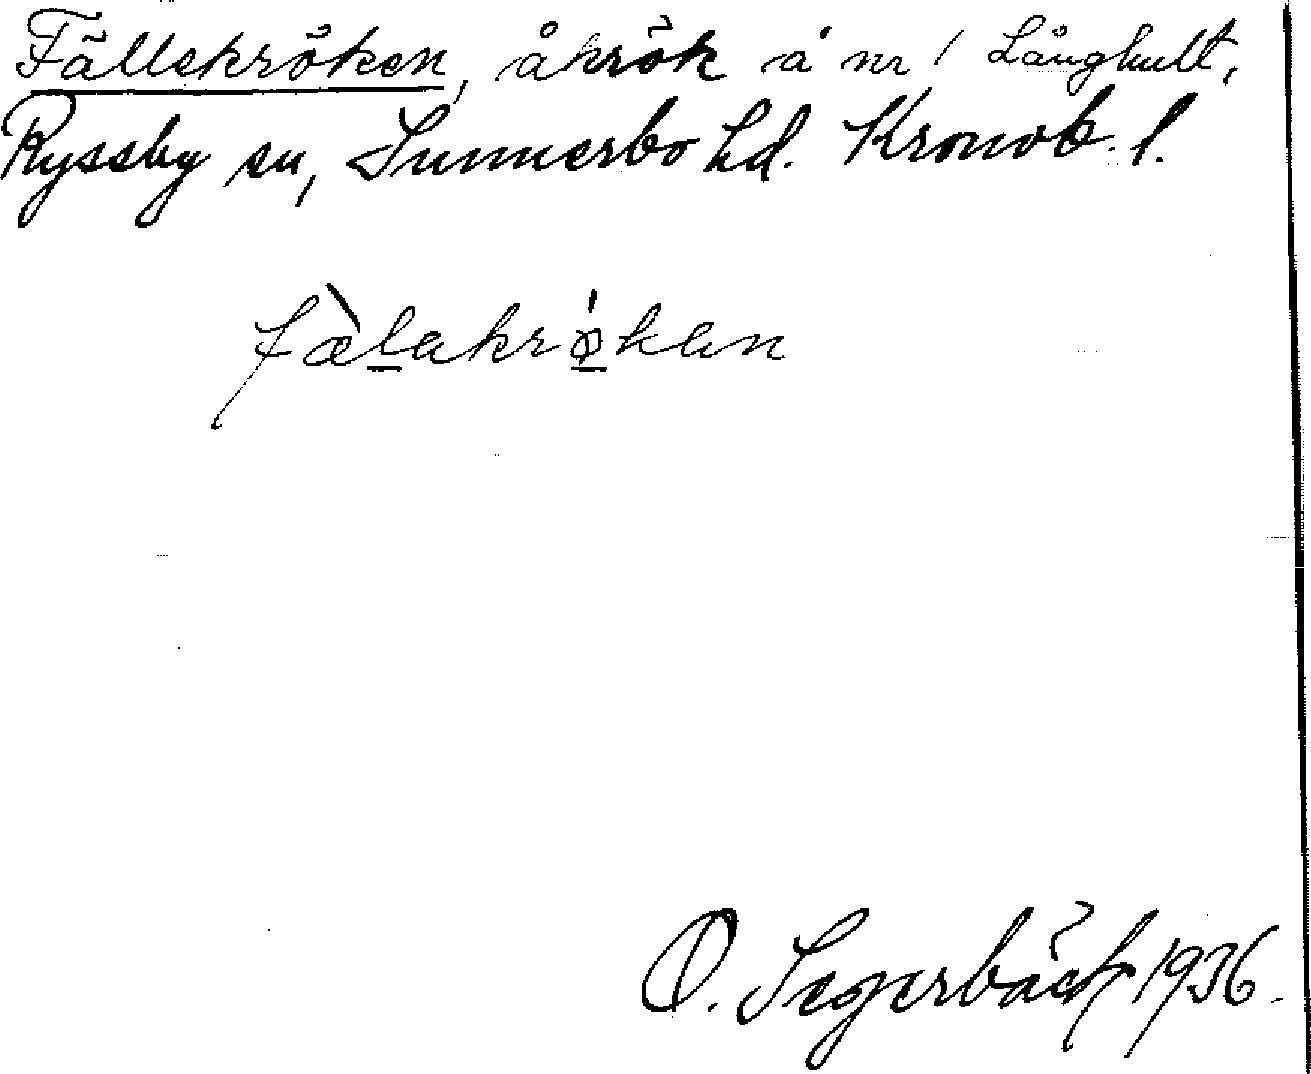 Fällekröken, åkrök å nr 1 Långhult,
Ryssby sn, Sunnerbo hd. Kronob. l.
fæ̀lakrø̍kan
O. Segerbäck 1936.